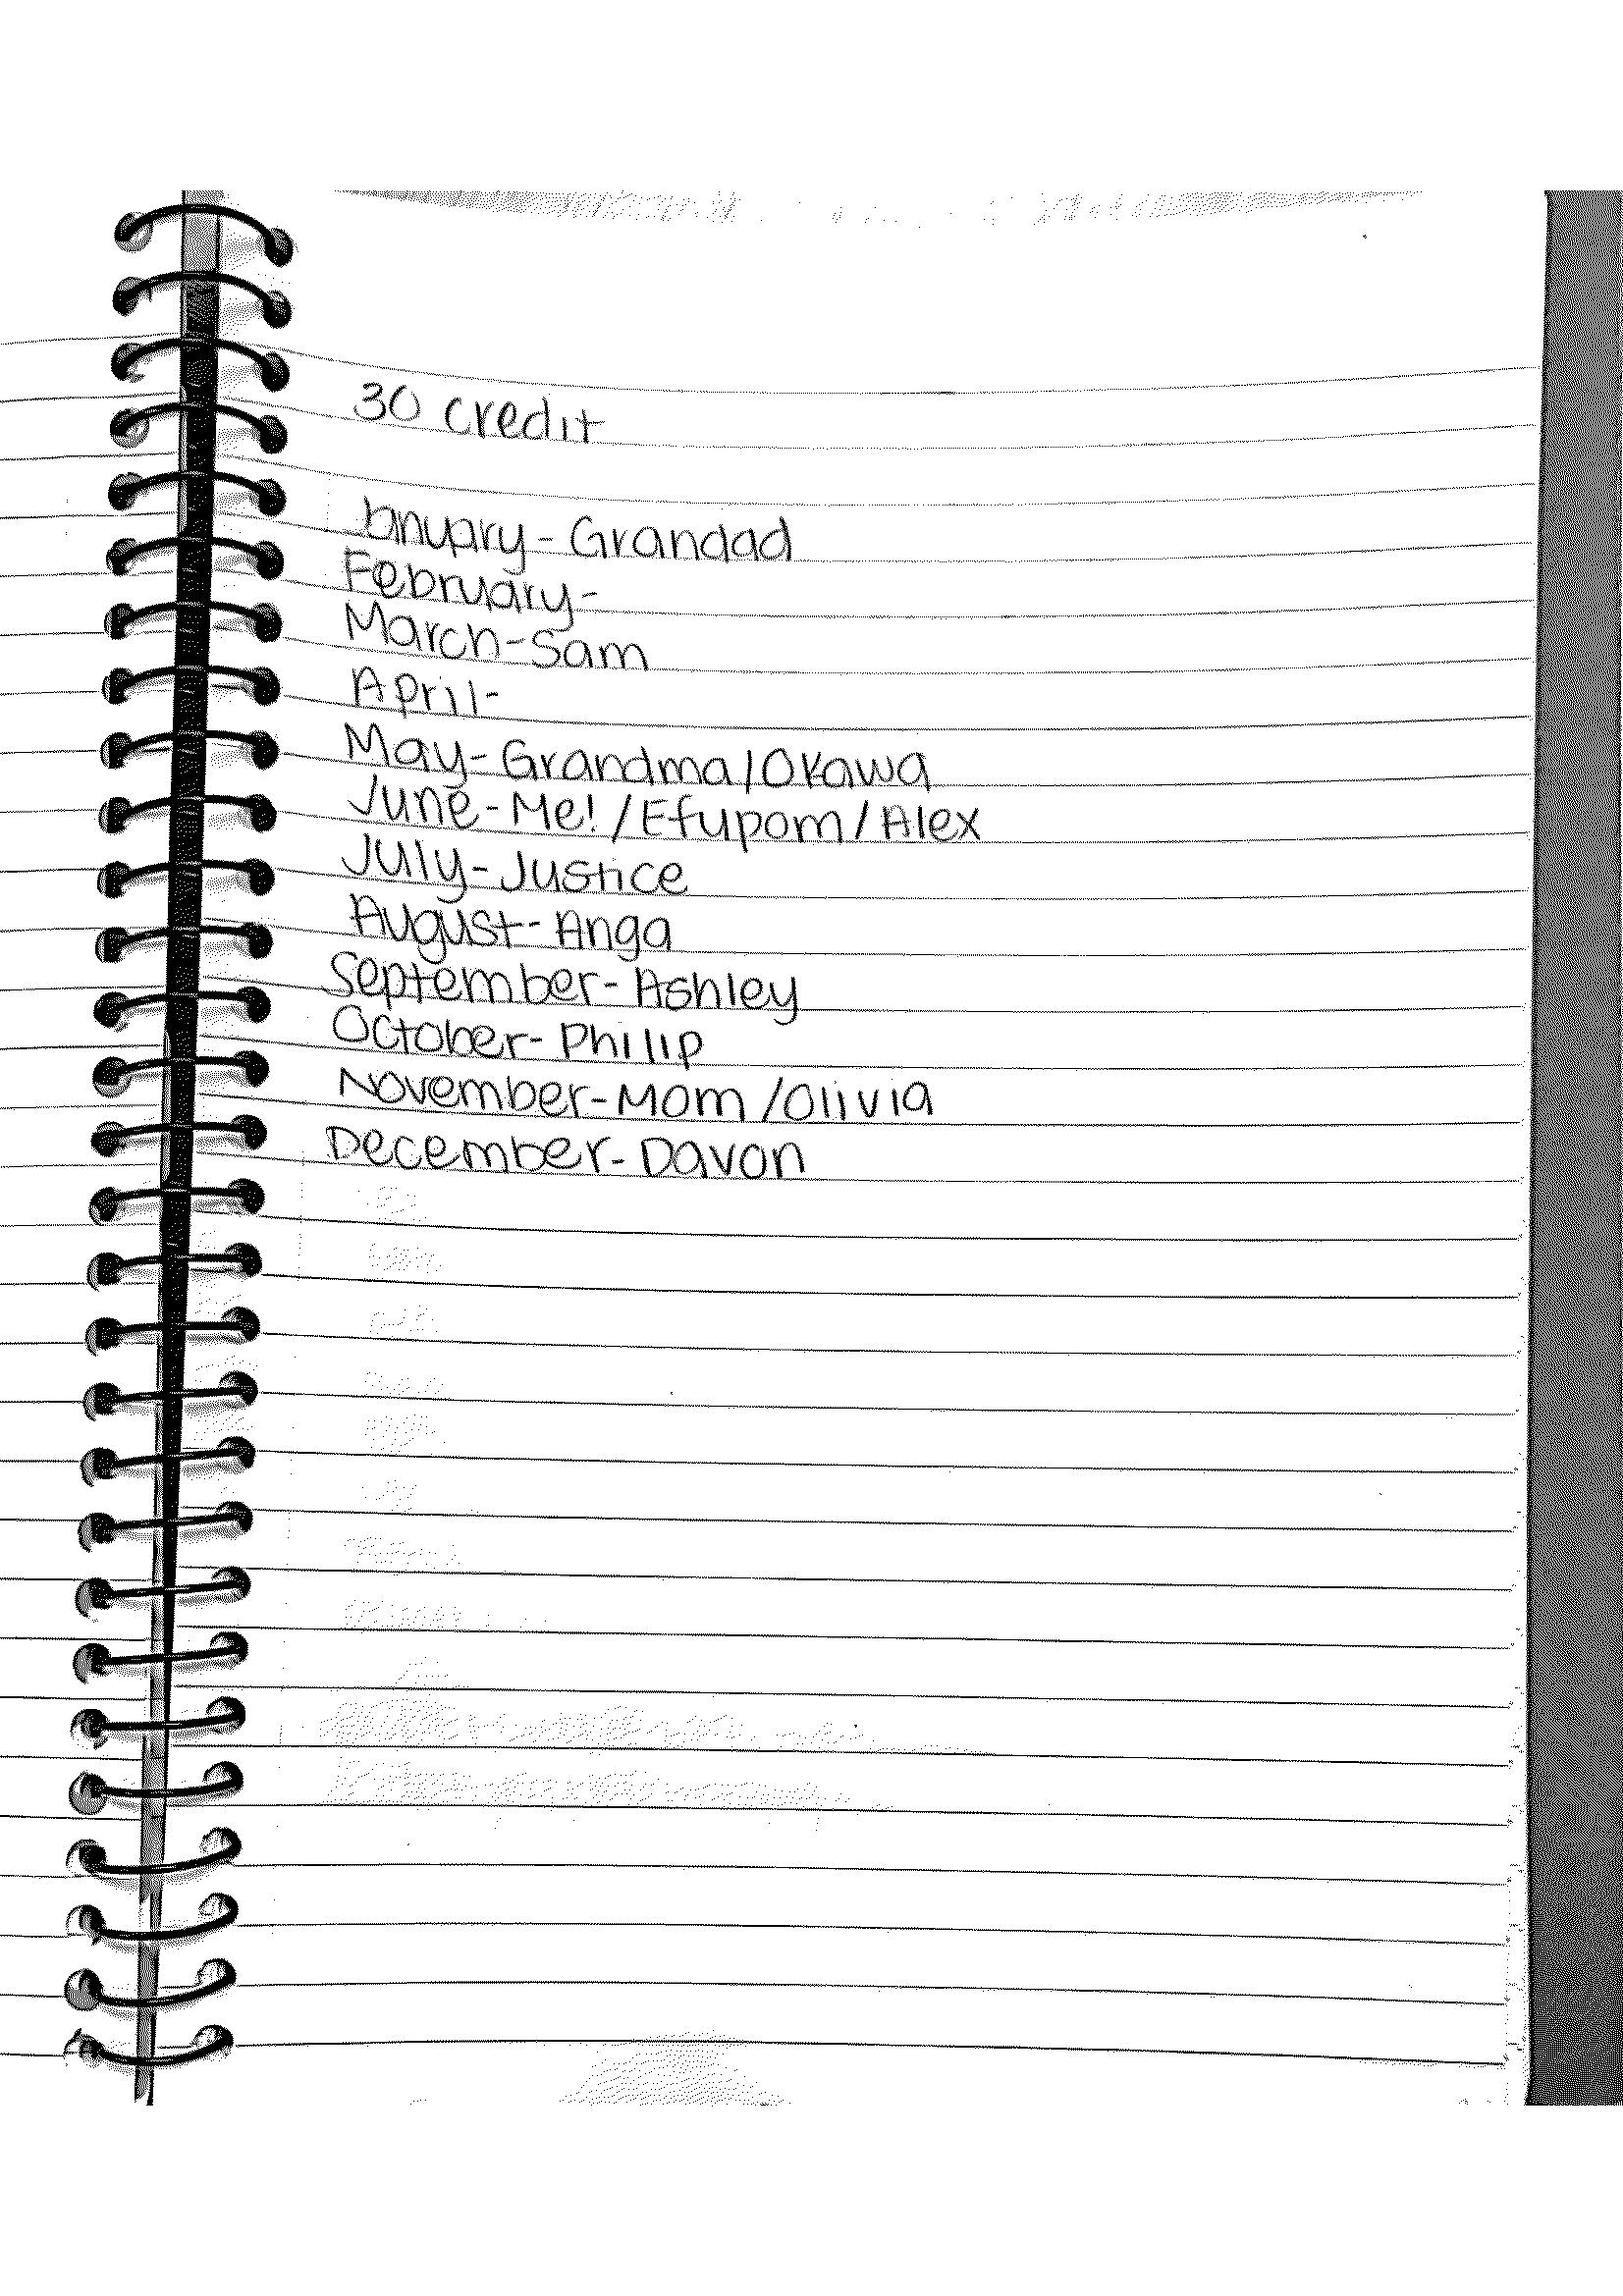 30 credit
January - Grandad
February -
March - Sam
April -
May - Grandma / Okawa
June - Me! / Efupom / Alex
July - Justice
August - Anga
September - Ashley
October - Philip
November - Mom / Olivia
December - Davon